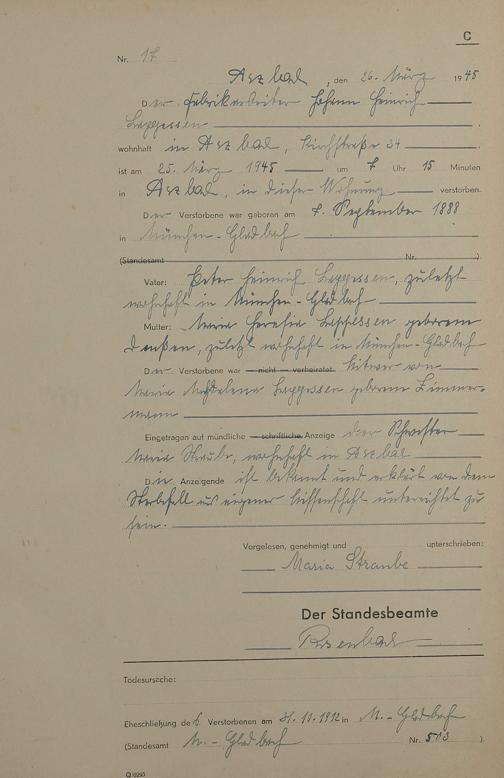 C
Nr. 17
Aszbad, den 26. März 1945
Der Fabrikarbeiter Johann Heinrich
Leppessen
wohnhaft in Aszbad, Kirchstraße 34
ist am 25. März 1945 um 7 Uhr 15 Minuten
in Aszbad, in dieser Wohnung verstorben.
Der Verstorbene war geboren am 7. September 1888
in München-Gladbach
(Standesamt Nr. )
Vater: Peter Heinrich Leppessen, zuletzt
wohnhaft in München-Gladbach
Mutter: Maria Theresia Leppessen geborene
zuletzt wohnhaft in München-Gladbach
Der Verstorbene war nicht verheiratet. Witwer von
Maria Magdalena Leppessen geborene Zimmer-
mann
Eingetragen auf mündliche schriftliche Anzeige der Schwester
Maria Straube, wohnhaft in Aszbad
Die Anzeigende ist bekannt und erklärt von dem
Sterbefall aus eigener Wissenschaft unterrichtet zu
sein.
Vorgelesen, genehmigt und unterschrieben:
Maria Straube
Der Standesbeamte
Todesursache:
Eheschließung des Verstorbenen am 31.10.1912 in M.-Gladbach
(Standesamt M.-Gladbach Nr. 503 ).